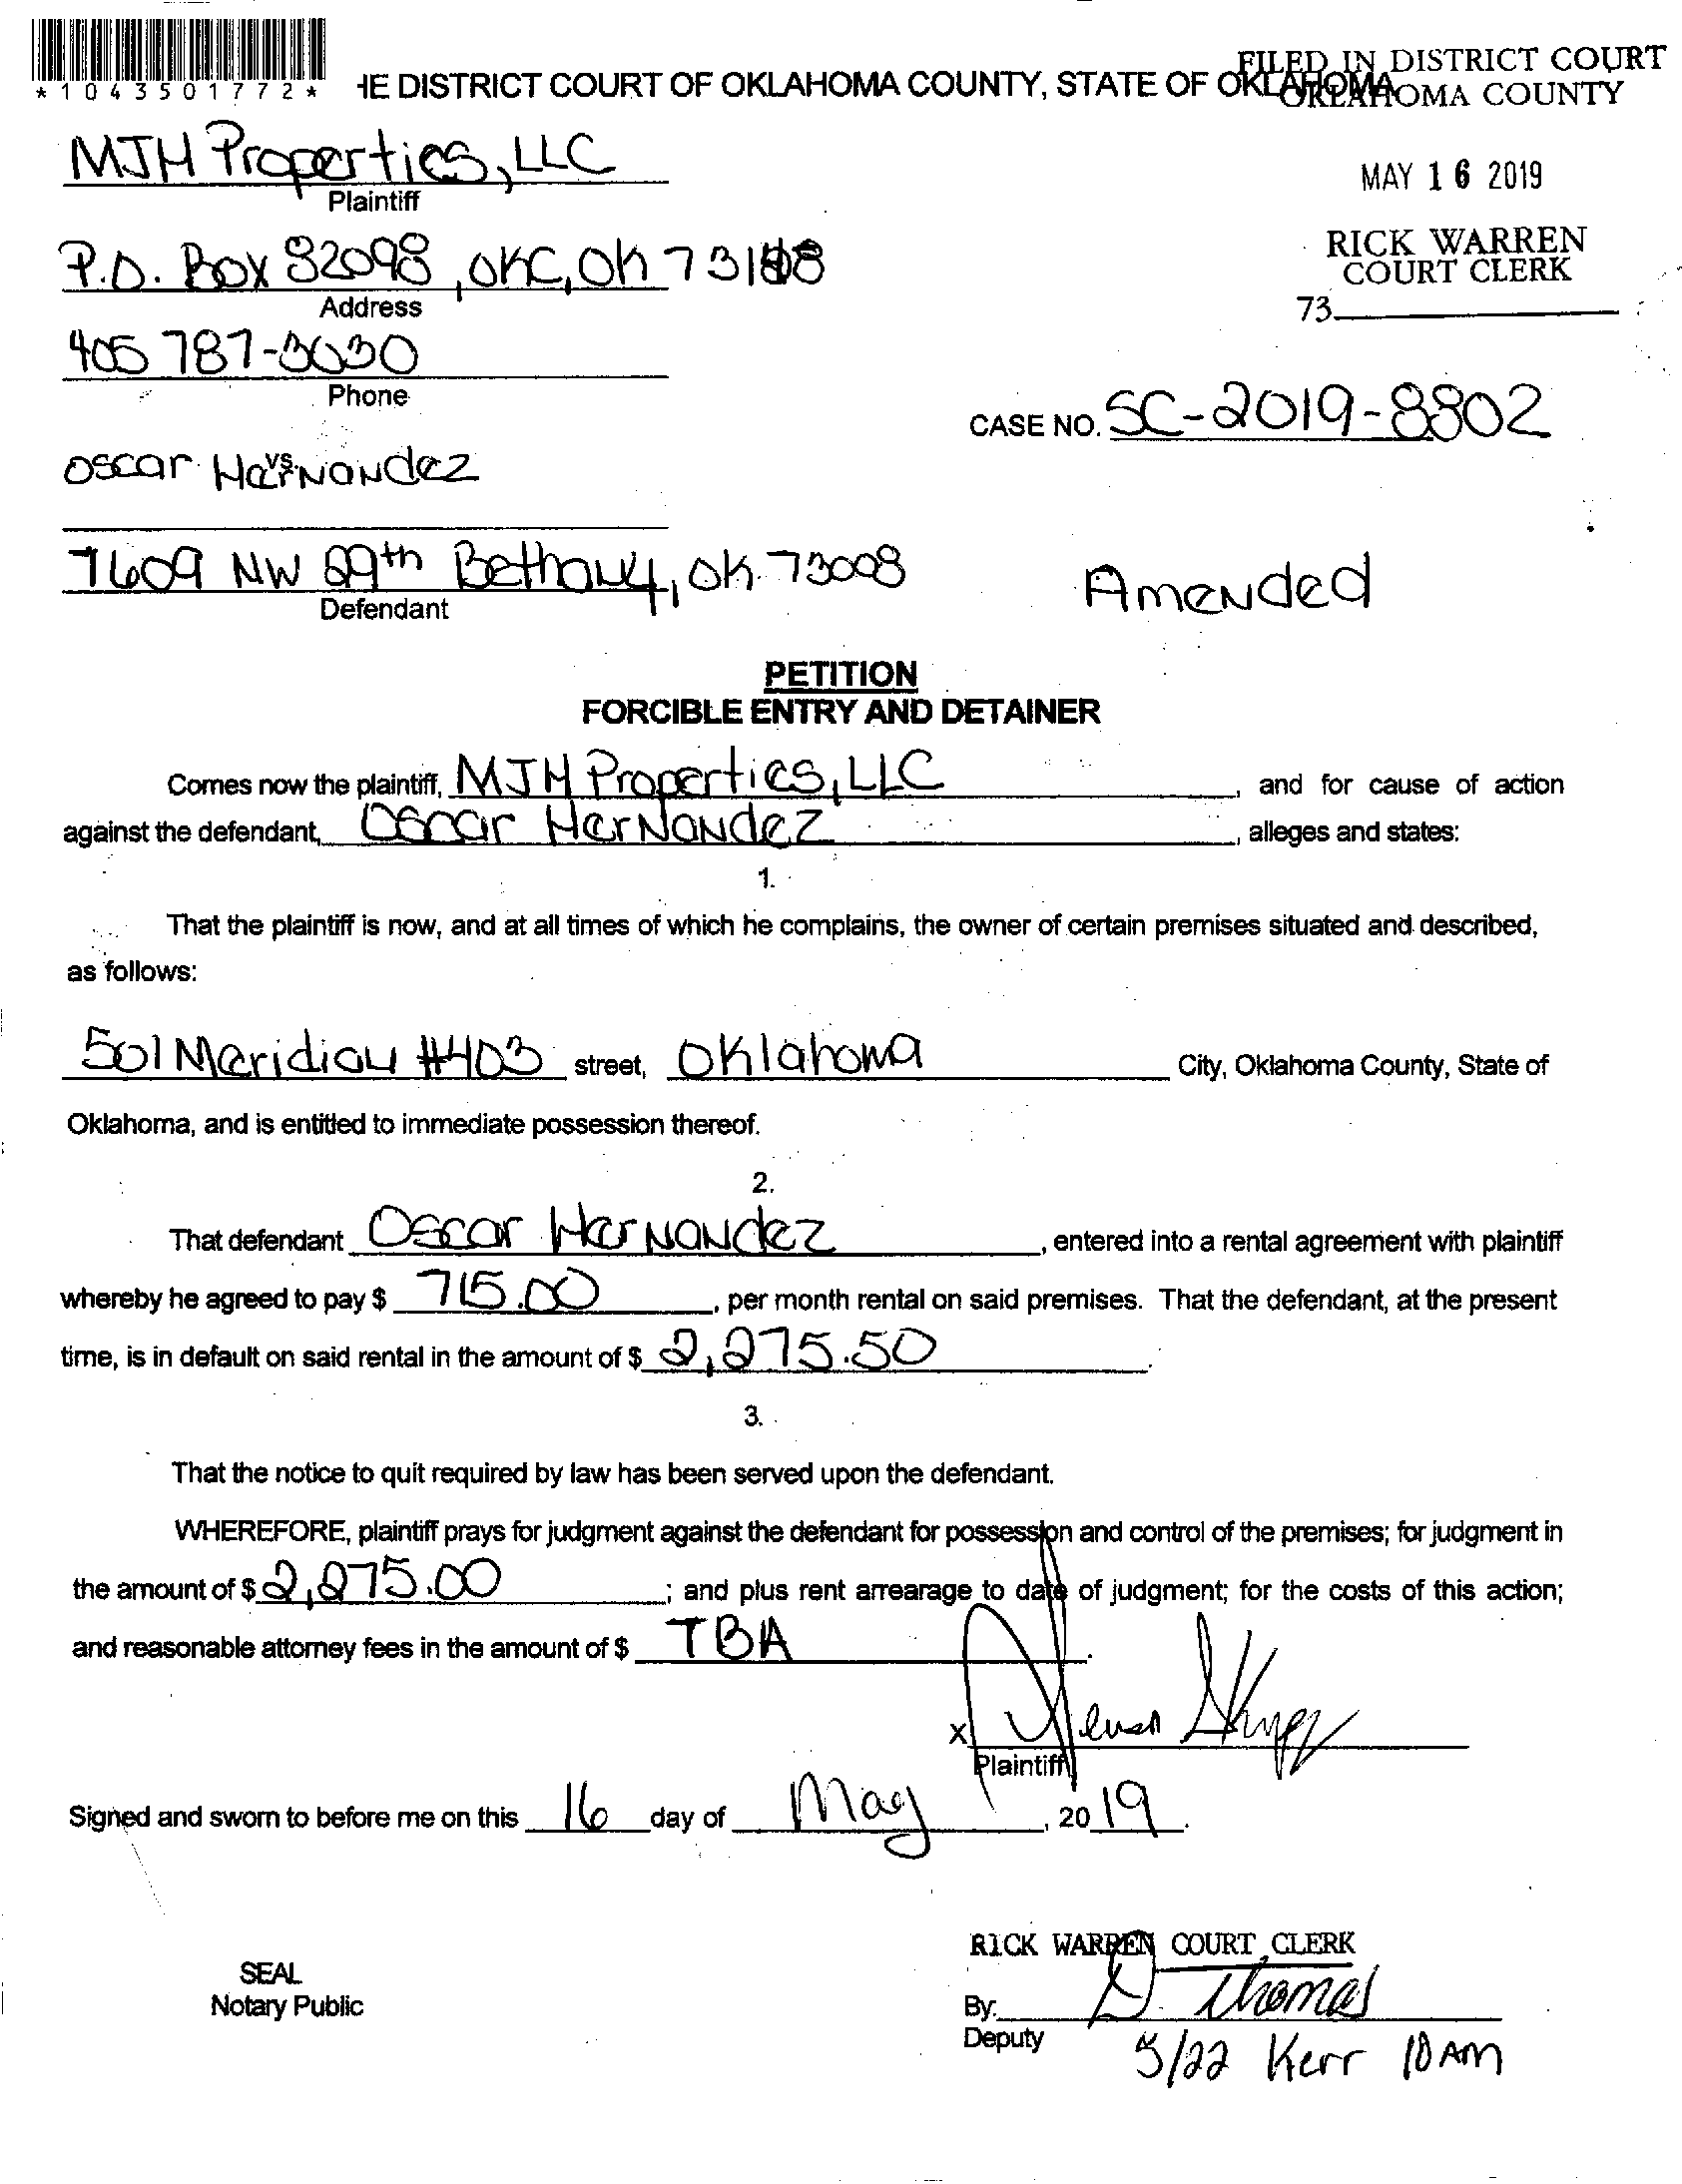 *1043501772*
HE DISTRICT COURT OF OKLAHOMA COUNTY, STATE OF OKLAHOMA
FILED IN DISTRICT COURT
OKLAHOMA COUNTY
MJH Properties, LLC
Plaintiff
MAY 16 2019
P.O. Box 82098, OKC, OK 73148
Address
RICK WARREN
COURT CLERK
73
405 787-3030
Phone
CASE NO. SC-2019-8802
vs.
Oscar Hernandez
7609 NW 29th Bethany, OK 73008
Defendant
Amended
PETITION
FORCIBLE ENTRY AND DETAINER
Comes now the plaintiff, MJH Properties, LLC, and for cause of action
against the defendant, Oscar Hernandez, alleges and states:
1.
That the plaintiff is now, and at all times of which he complains, the owner of certain premises situated and described,
as follows:
501 Meridian #403 street, Oklahoma City, Oklahoma County, State of
Oklahoma, and is entitled to immediate possession thereof.
2.
That defendant Oscar Hernandez, entered into a rental agreement with plaintiff
whereby he agreed to pay $ 715.00, per month rental on said premises. That the defendant, at the present
time, is in default on said rental in the amount of $ 2,275.50.
3.
That the notice to quit required by law has been served upon the defendant.
WHEREFORE, plaintiff prays for judgment against the defendant for possession and control of the premises; for judgment in
the amount of $ 2,275.00; and plus rent arrearage to date of judgment; for the costs of this action;
and reasonable attorney fees in the amount of $ TBA.
X
Plaintiff
Signed and sworn to before me on this 16 day of May, 2019.
RICK WARREN COURT CLERK
SEAL
Notary Public
By: D. Thomas
Deputy
5/22 Kerr 10 AM